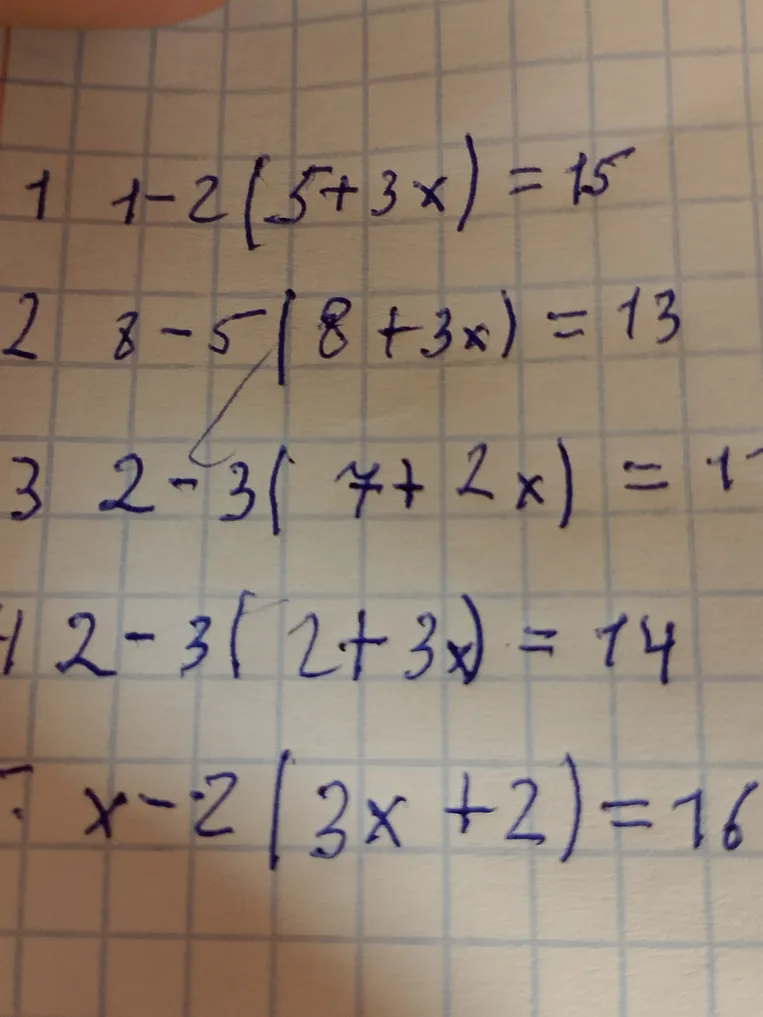 1 1-2(5+3x)=15
2 8-5(8+3x)=13
3 2-3(7+2x)=1
2-3(2+3x)=14
x-2(3x+2)=16